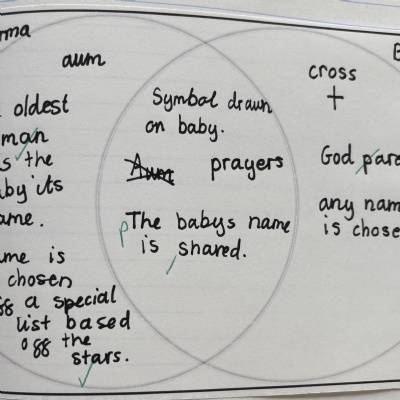 rma
aum
oldest
man
s the
aby its
ame.
me is
chosen
ogg a special
list based
ogg the
stars.
Symbol drawn
on baby.
Aum prayers
The babys name
is shared.
cross
God pare
any nam
is chose